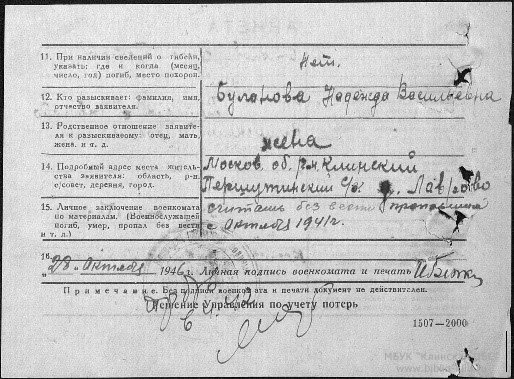 11. При наличии сведений о гибели, Нет.
указать: где и когда (месяц,
число, год) погиб, место похорон.
12. Кто разыскивает: фамилия, имя, Буланова Надежда Васильевна
отчество заявителя.
13. Родственное отношение заявите-
ля к разыскиваемому: отец, мать, жена
жена и т. д.
14. Подробный адрес места житель- Москов. об. р-н Клинский
ства заявителя: область, р-н,
с/совет, деревня, город.
15. Личное заключение военкомата считать без вести
по материалам. (Военнослужащий с октября 1941 г.
погиб, умер, пропал без вести
и т. д.)
16. "28" октября 1946 г. Личная подпись военкомата и печать
Примечание. Без подписи военкомата и печати документ не действителен.
Решение Управления по учету потерь
1507—2000